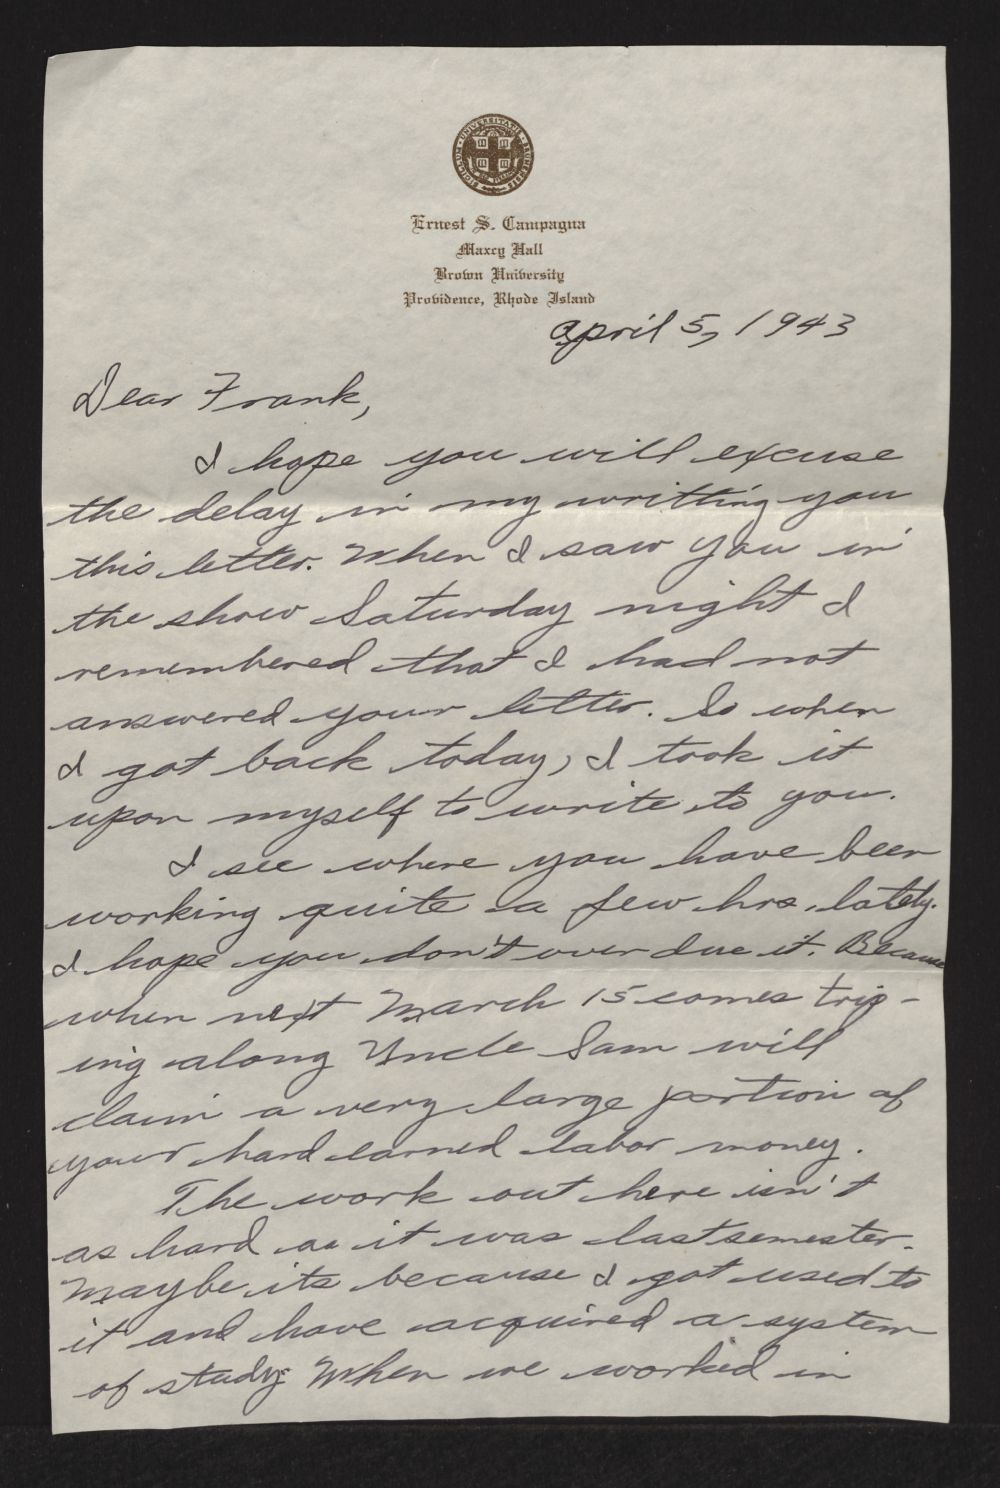 SIGILLUM UNIVERSITATIS BRUNENSIS
Ernest S. Campagna
Maxcy Hall
Brown University
Providence, Rhode Island
April 5, 1943
Dear Frank,
I hope you will excuse
the delay in my writting you
this letter. When I saw you in
the show Saturday night I
remembered that I had not
answered your letter. So when
I got back today, I took it
upon myself to write to you.
I see where you have been
working quite a few hrs. lately.
I hope you don't over due it. Because
when next March 15 comes trip-
ing along Uncle Sam will
claim a very large portion of
your hard earned labor money.
The work out here isn't
as hard as it was last semester.
Maybe its because I got used to
it and have acquired a system
of study. When we worked in